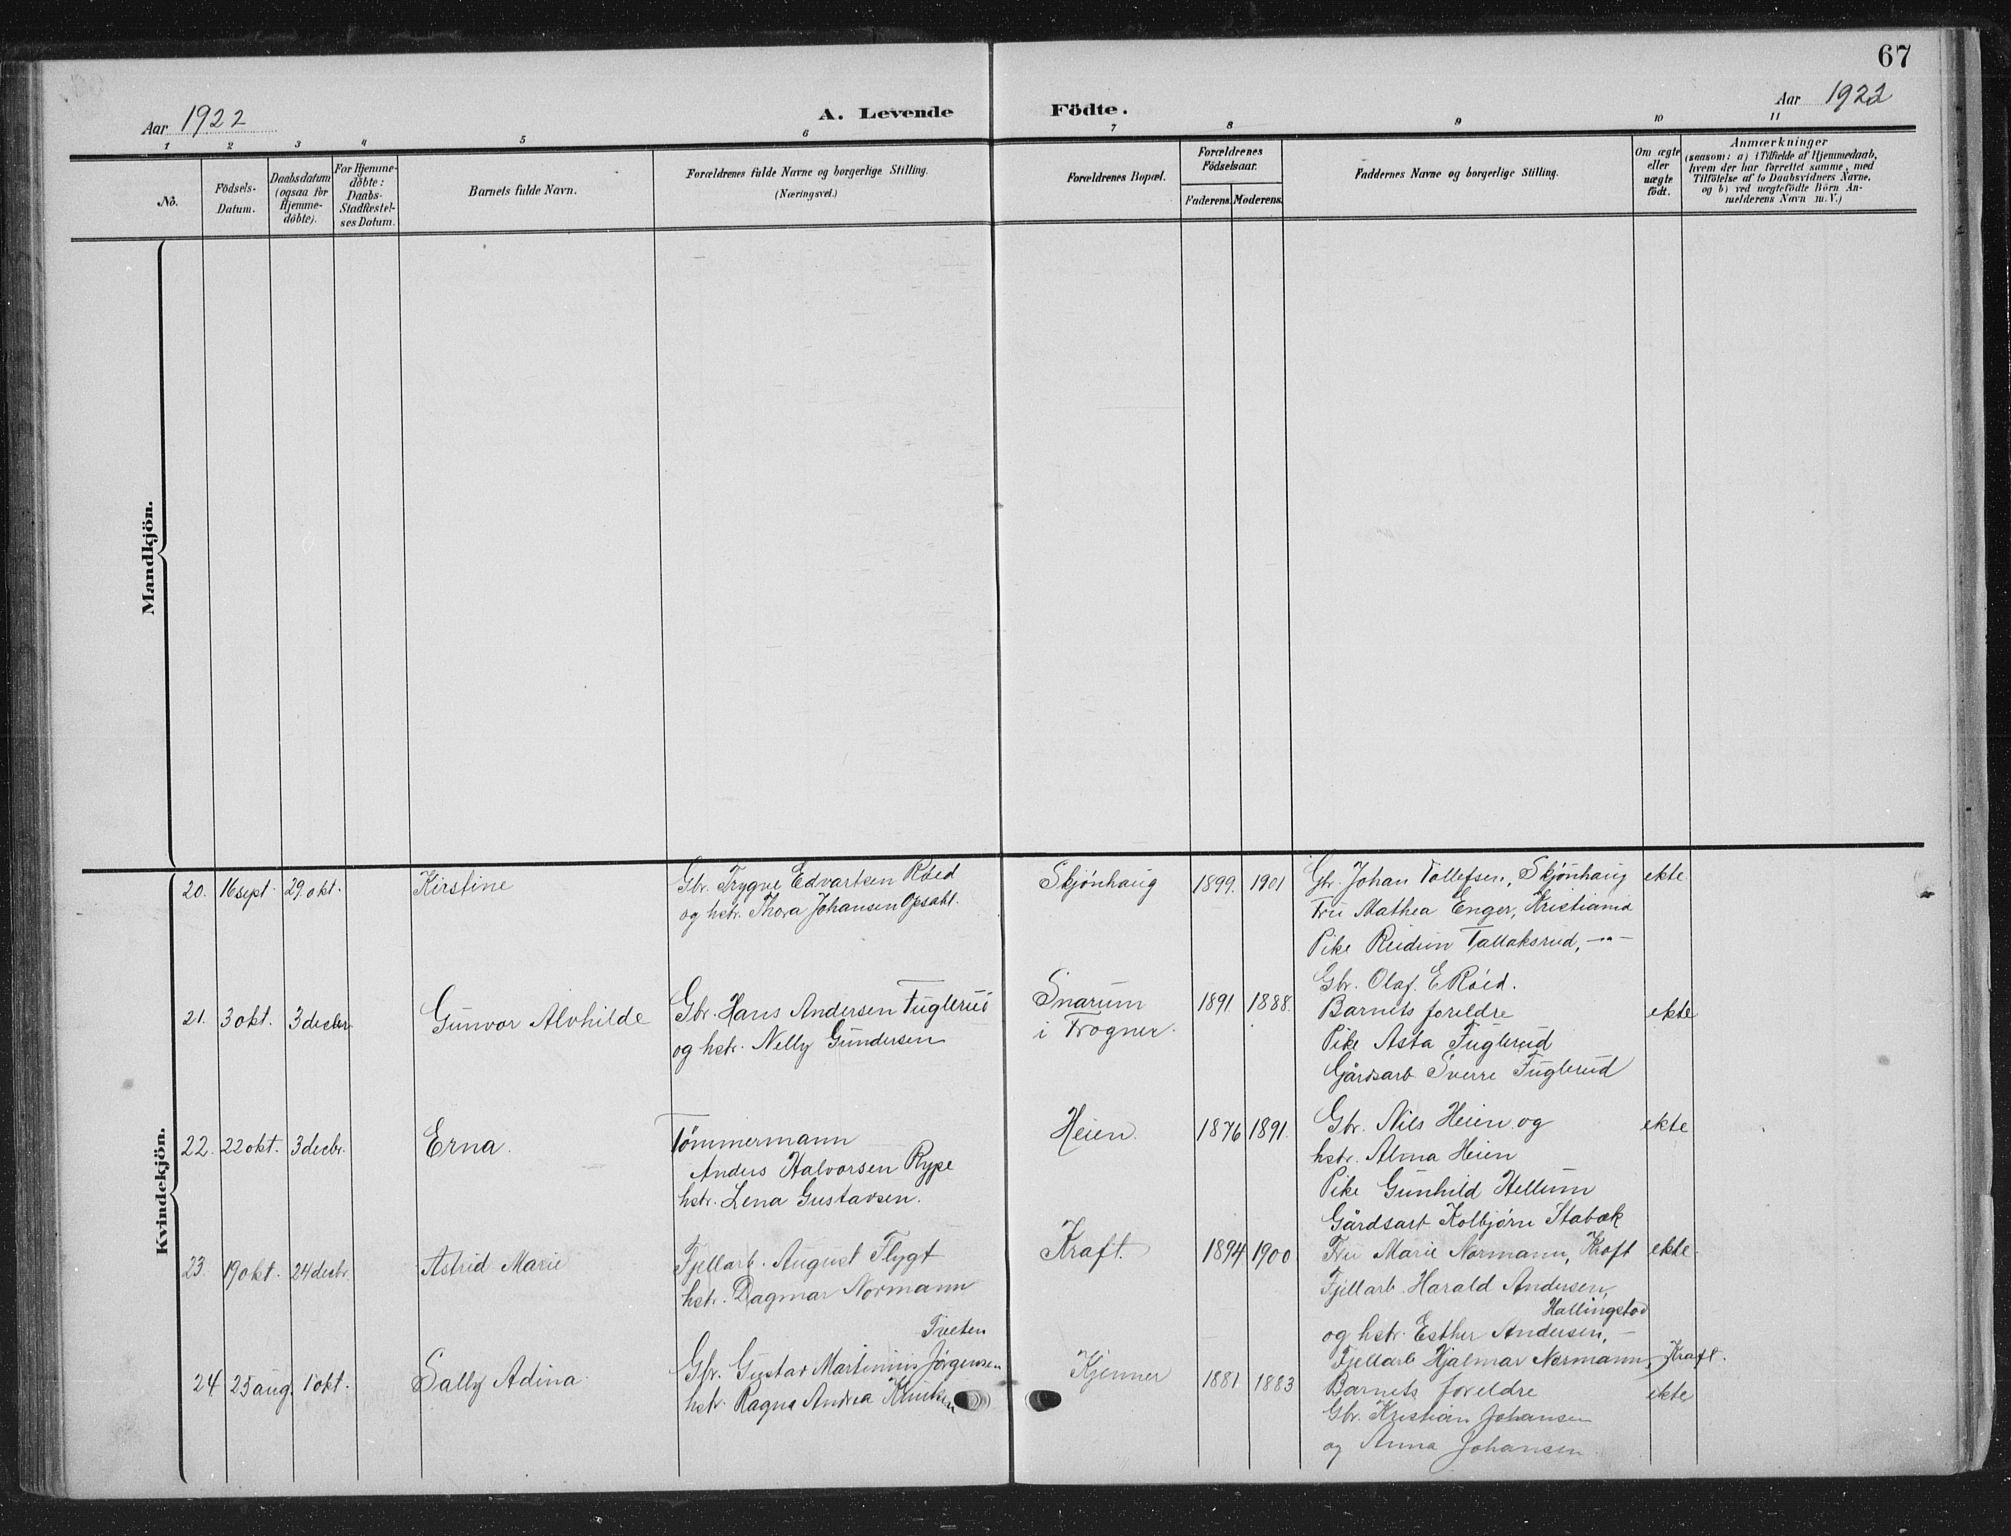 67
Aar 1922
A. Levende Födte.
Aar 1922
1 2 3 4 5 6 7 8 9 10 11
No.
Födsels-
Datum.
Daabsdatum
(ogsaa for
Hjemme-
döbte).
For Hjemme-
döbte:
Daabs-
Stadfæstel-
ses Datum.
Barnets fulde Navn.
Forældrenes fulde Navne og borgerlige Stilling.
(Næringsvei.)
Forældrenes Bopæl.
Forældrenes
Födselsaar.
Faderens. Moderens.
Faddernes Navne og borgerlige Stilling.
Om ægte
eller
uægte
födt.
Anmærkninger
(saasom: a) i Tilfælde af Hjemmedaab,
hvem der har forrettet samme, med
Tilföielse af to Daabsvidners Navne,
og b) ved uægtefödte Börn An-
melderens Navn m. V.)
Mandkjön.
Kvindekjön.
20. 16 sept. 29. okt. Kirstine
Gbr. Trygve Edvartsen Röed
og hstr. Thora Johansen Opsahl.
Skjønhaug 1899. 1901
Gbr. Johan Tollefsen, Skjønhaug ekte
Fru Mathea Enger, Kristiania
Pike Reidun Tallaksrud, -"-
Gbr. Olaf. E Röed.
21. 3 okt. 3 decbr. Gunvor Alvhilde
Gbr. Hans Andersen Fuglerud
og hstr. Nelly Gundersen
Snarum
i Frogner.
1891. 1888.
Barnets foreldre ekte
Pike Asta Fuglerud
Gårdsarb Sverre Fuglerud
22. 22 okt. 3 decbr. Erna.
Tømmermann
Anders Halvorsen Rype
hstr. Lena Gustavsen.
Heien. 1876 1891.
Gbr. Nils Heien og ekte
hstr. Alma Heien
Pike Gunhild Hellum
Gårdsarb Kolbjørn Stabæk
23. 19 okt. 24 decbr. Astrid Marie
Fjellarb. August Flygt
hstr. Dagmar Normann
Kraft. 1894 1900
Fru Marie Normann, Kraft ekte
Fjellarb. Harald Andersen,
Hallingstad
og hstr. Esther Andersen, -
Fjellarb Hjalmar Normann, Kraft.
24 25 aug 1 okt. Sally Adina
Tveten
Gbr. Gustav Martinius Jörgensen
hstr. Ragna Andrea
Kjenner 1881 1883
Barnets foreldre ekte
Gbr. Kristian Johansen
og Anna Johansen.